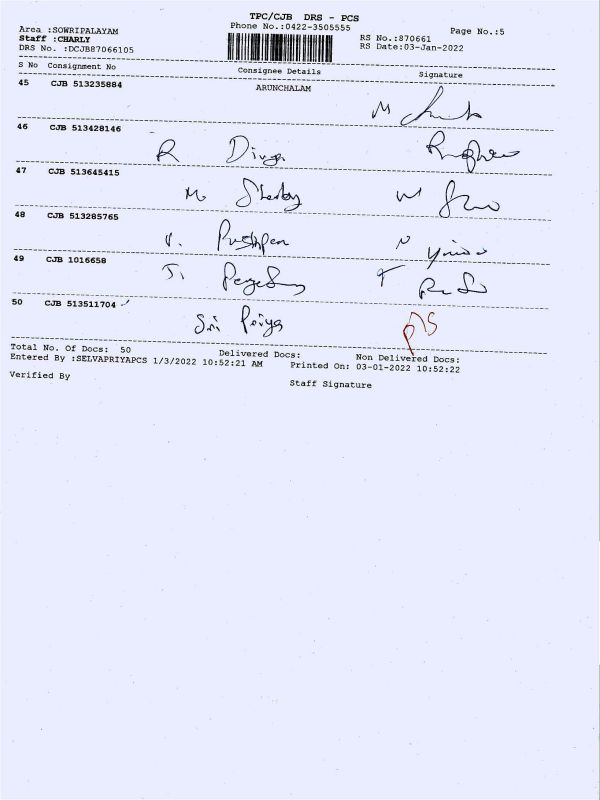 TPC/CJB DRS - PCS
Area :SOWRIPALAYAM Phone No.:0422-3505555 Page No.:5
Staff :CHARLY RS No.:870661
DRS No. :DCJB87066105 RS Date:03-Jan-2022
S No Consignment No Consignee Details Signature
45 CJB 513235884 ARUNCHALAM
M
46 CJB 513428146
R Divya
47 CJB 513645415
M
48 CJB 513285765
49 CJB 1016658
50 CJB 513511704
Sri Priya
Total No. Of Docs: 50 Delivered Docs: Non Delivered Docs:
Entered By :SELVAPRIYAPCS 1/3/2022 10:52:21 AM Printed On: 03-01-2022 10:52:22
Verified By Staff Signature